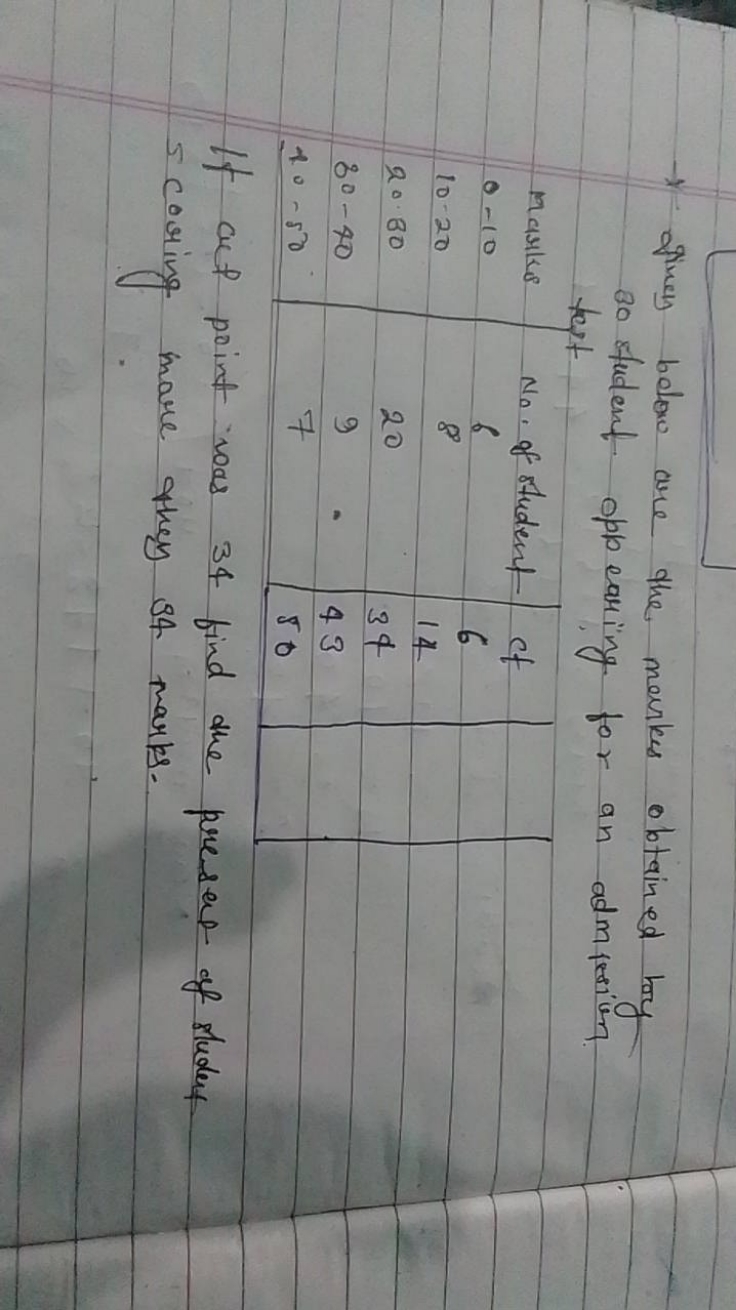 * given below are the marks obtained by
50 student appearing for an admission
test
Marks No. of student cf
0-10 6 6
10-20 8 14
20-30 20 34
30-40 9 43
40-50 7 50
If cut point was 34 find the of student
scoring more then 34 marks.